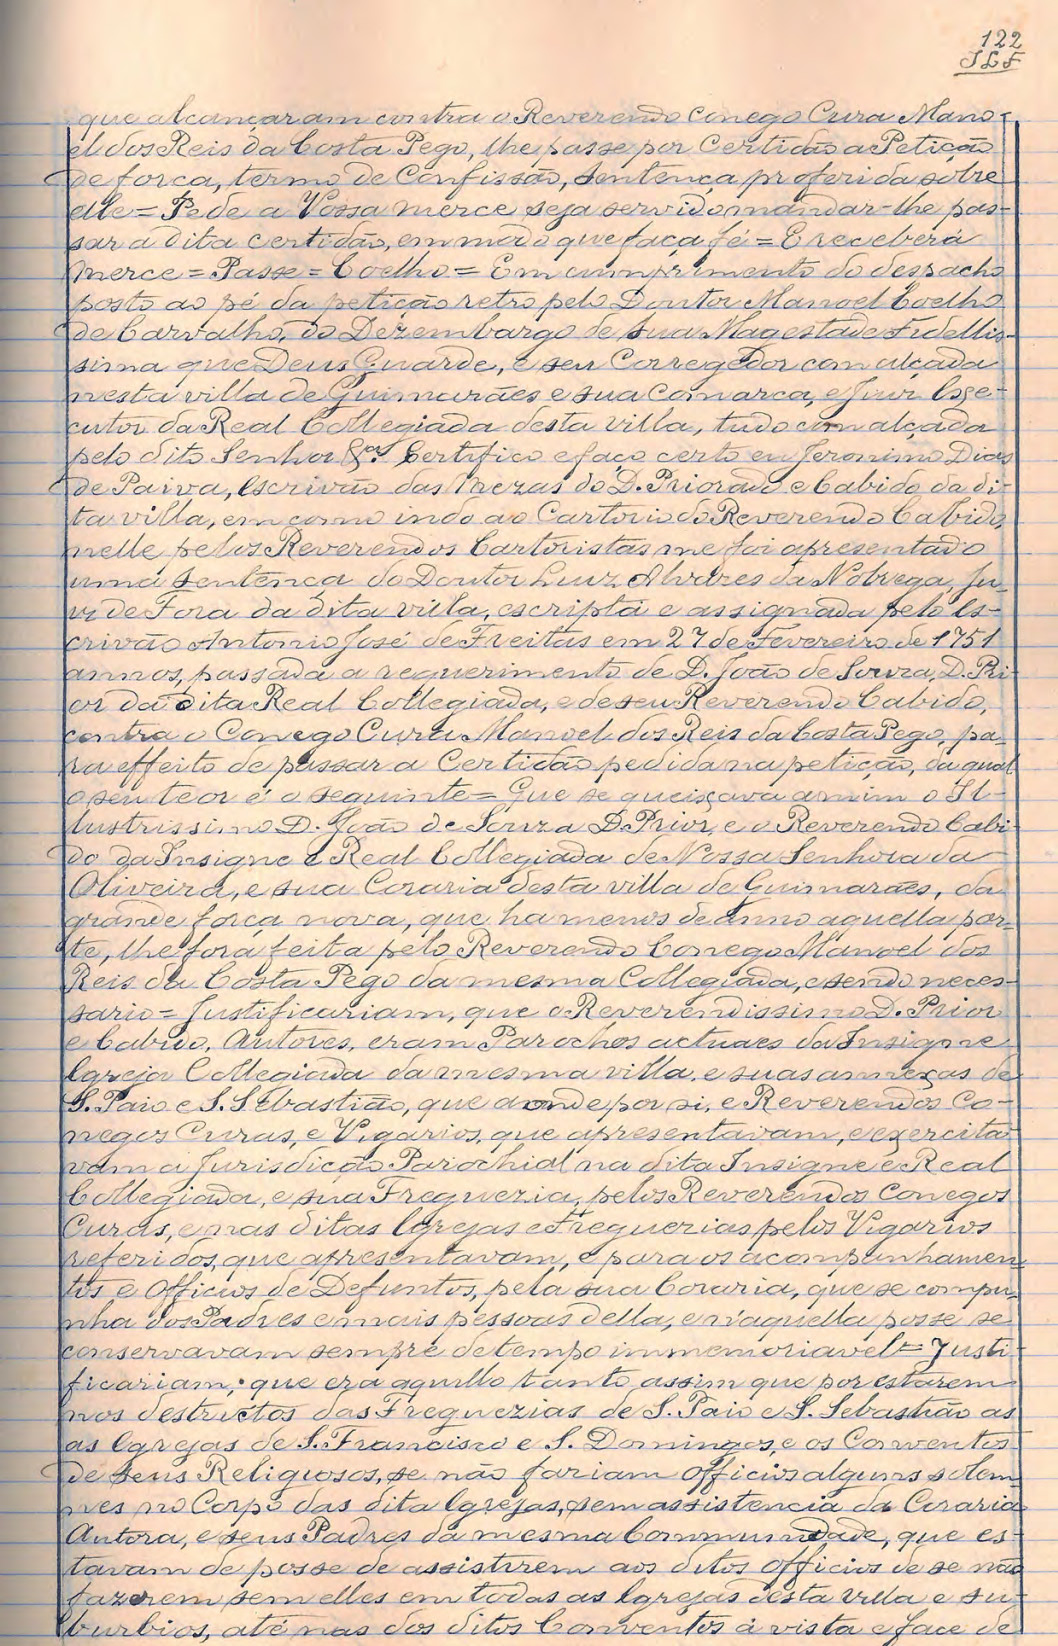 122
JLF
que alcançaram contra o Reverendo Conego Cura Mano-
el dos Reis da Costa Pego, lhe passe por Certidão a Petição
de força, termo de Confissão, sentença proferida sobre
elle = Pede a Vossa merce seja servido mandar-lhe pas-
sar a dita certidão, em modo que faça fé = E receberá
merce = Passe = Coelho = Em cumprimento do despacho
posto ao pé da petição retro pelo Doutor Manoel Coelho
de Carvalho, do Dezembargo de sua Magestade Fidellis-
sima que Deus Guarde, e seu Corregedor com alçada
nesta villa de Guimarães e sua Comarca, e Juiz Exe-
cutor da Real Collegiada desta villa, tudo com alçada
pelo dito Senhor &ª. Certifico e faço certo eu Jeronimo Dias
de Paiva, Escrivão das Mezas do D. Priorado e Cabido da di-
ta villa, em como indo ao Cartorio do Reverendo Cabido,
nelle pelos Reverendos Cartoristas me foi apresentado
uma sentença do Doutor Luiz Alvares da Nobrega, Ju-
iz de Fora da dita villa, escripta e assignada pelo Es-
crivão Antonio José de Freitas em 27 de Fevereiro de 1751
annos, passada a requerimento de D. João de Souza, D. Pri-
or da dita Real Collegiada, e de seu Reverendo Cabido,
contra o Conego Cura Manoel dos Reis da Costa Pego, pa-
ra effeito de passar a Certidão pedida na petição, da qual
o seu teor é o seguinte = Que se queixava a mim o Il-
lustrissimo D. João de Souza D. Prior, e o Reverendo Cabi-
do da Insigne e Real Collegiada de Nossa Senhora da
Oliveira, e sua Coraria desta villa de Guimarães, da
grande força nova, que ha menos de anno aquella par-
te, lhe fora feita pelo Reverendo Conego Manoel dos
Reis da Costa Pego da mesma Collegiada, e sendo neces-
sario = Justificariam, que o Reverendissimo D. Prior
e Cabido, Autores, eram Parochos actuaes da Insigne
Igreja Collegiada da mesma villa, e suas annexas de
S. Paio e S. Sebastião, que aonde por si, e Reverendos Co-
negos Curas, e Vigarios, que apresentavam, e exercita-
vam a Jurisdição Parochial na dita Insigne e Real
Collegiada, e sua Freguezia, pelos Reverendos Conegos
Curas, e nas ditas Igrejas e Freguezias pelos Vigarios
referidos, que apresentavam, e para os acompanhamen-
tos e Officios de Defuntos, pela sua Coraria, que se compu-
nha dos Padres e mais pessoas della, e n'aquella posse se
conservavam sempre de tempo immemoriavel = Justi-
ficariam, que era aquillo tanto assim que por estarem
nos destrictos das Freguezias de S. Paio e S. Sebastião as
as Igrejas de S. Francisco e S. Domingos, e os Conventos
de seus Religiosos, se não fariam Officios alguns solem-
nes no Corpo das dita Igrejas, sem assistencia da Coraria
Autora, e seus Padres da mesma Communidade, que es-
tavam de posse de assistirem aos ditos officios de se não
fazerem sem elles em todas as Igrejas desta villa e su-
burbios, até nas dos ditos Conventos á vista e face de